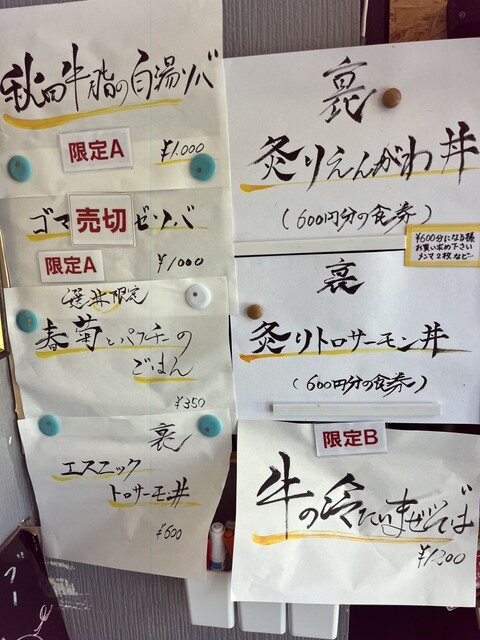 秋田牛脂の白湯ソバ
限定A
¥1.000
ゴマ
売切
ゼソバ
限定A
¥1000
選丼限定
春菊とパクチーの
ごはん
¥350
裏
エスニック
トロサーモン丼
¥600
裏
炙りえんがわ丼
(600円分の食券)
¥600分になる様
お買い求め下さい
メンマ2枚など…
裏
炙りトロサーモン丼
(600円分の食券)
限定B
牛の冷たいまぜそば
¥1.300